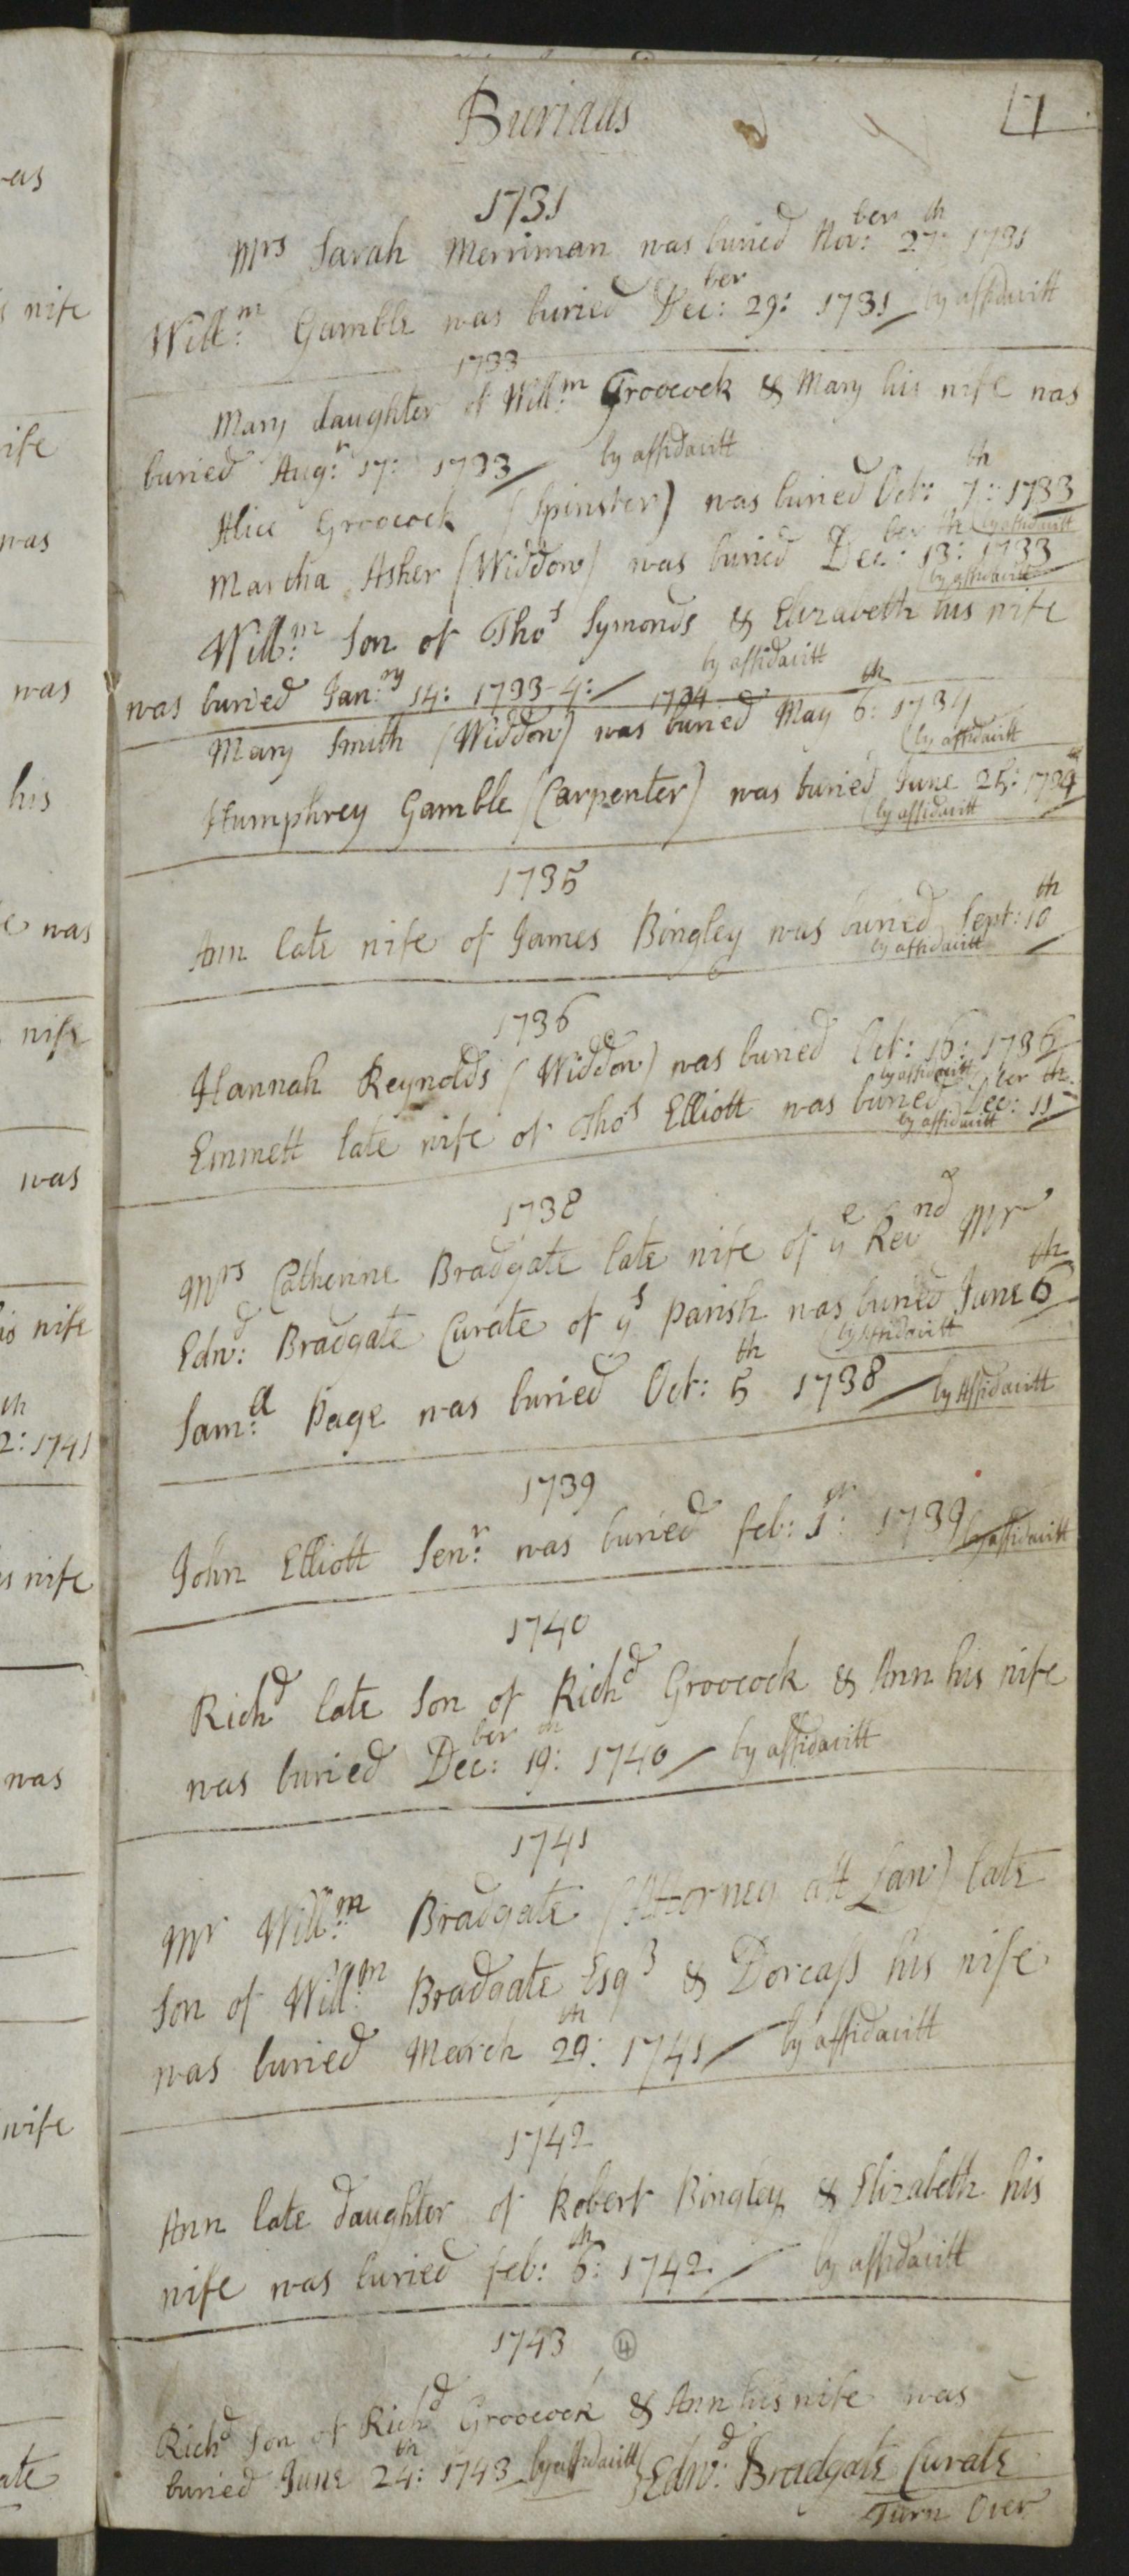 as
Burialls
17
1731
Mrs Sarah Merriman was buried Nov:ber 27:th 1731
s wife
Will:m Gamble was buried Dec:ber 29: 1731 by affidavitt
1733
Mary daughter of Will:m Groocock & Mary his wife was
ife
buried Aug: 17: 1733 by affidavitt
Alice Groocock (Spinster) was buried Oct: 7:th 1733
by affidavitt
was
Martha Asher (Widdow) was buried Dec:ber 13:th 1733
by affidavitt
Will:m Son of Tho:s Symonds & Elizabeth his wife
by affidavitt
was
was buried Jan:ry 14: 1733-4:
1734
Mary Smith (Widdow) was buried May 6:th 1734
by affidavitt
his
Humphrey Gamble (Carpenter) was buried June 25: 1734
by affidavitt
1735
e was
Ann late wife of James Bingley was buried Sept: 10th
by affidavitt
wife
1736
Hannah Reynolds (Widdow) was buried Oct: 16: 1736
by affidavitt
Emmett late wife of Tho:s Elliott was buried Dec:ber 11th
by affidavitt
was
1738
Mrs Catherine Bradgate late wife of ye Revnd Mr
is wife
Edw:d Bradgate Curate of ys parish was buried June 6th
by affidavitt
th
Sam:ll Page was buried Oct: 5th 1738 by Affidavitt
2: 1741
1739
John Elliott Sen:r was buried feb: 1:st 1739 by affidavitt
is wife
1740
Richd late Son of Richd Groocock & Ann his wife
was
was buried Dec:ber 19:th 1740 by affidavitt
1741
Mr Will:m Bradgate (Attorney att Law) late
Son of Will:m Bradgate Esqr & Dorcass his wife
was buried March 29:th 1741 by affidavitt
wife
1742
Ann late daughter of Robert Bingley & Elizabeth his
wife was buried feb: 6:th 1742 by affidavitt
1743 4
Richd Son of Richd Groocock & Ann his wife was
ate
buried June 24:th 1743 by affidavitt Edw:d Bradgate Curate
Turn Over